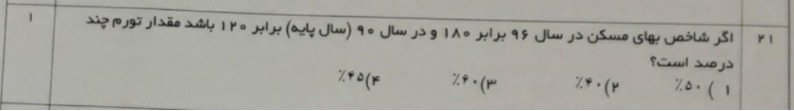 ۲۱ اگر شاخص بهای مسکن در سال ۹۶ برابر ۱۸۰ و در سال ۹۰ (سال پایه) برابر ۱۲۰ باشد مقدار تورم چند ۱
درصد است؟
۱) ۵۰٪ ۲) ۴۰٪ ۳) ۶۰٪ ۴) ۴۵٪